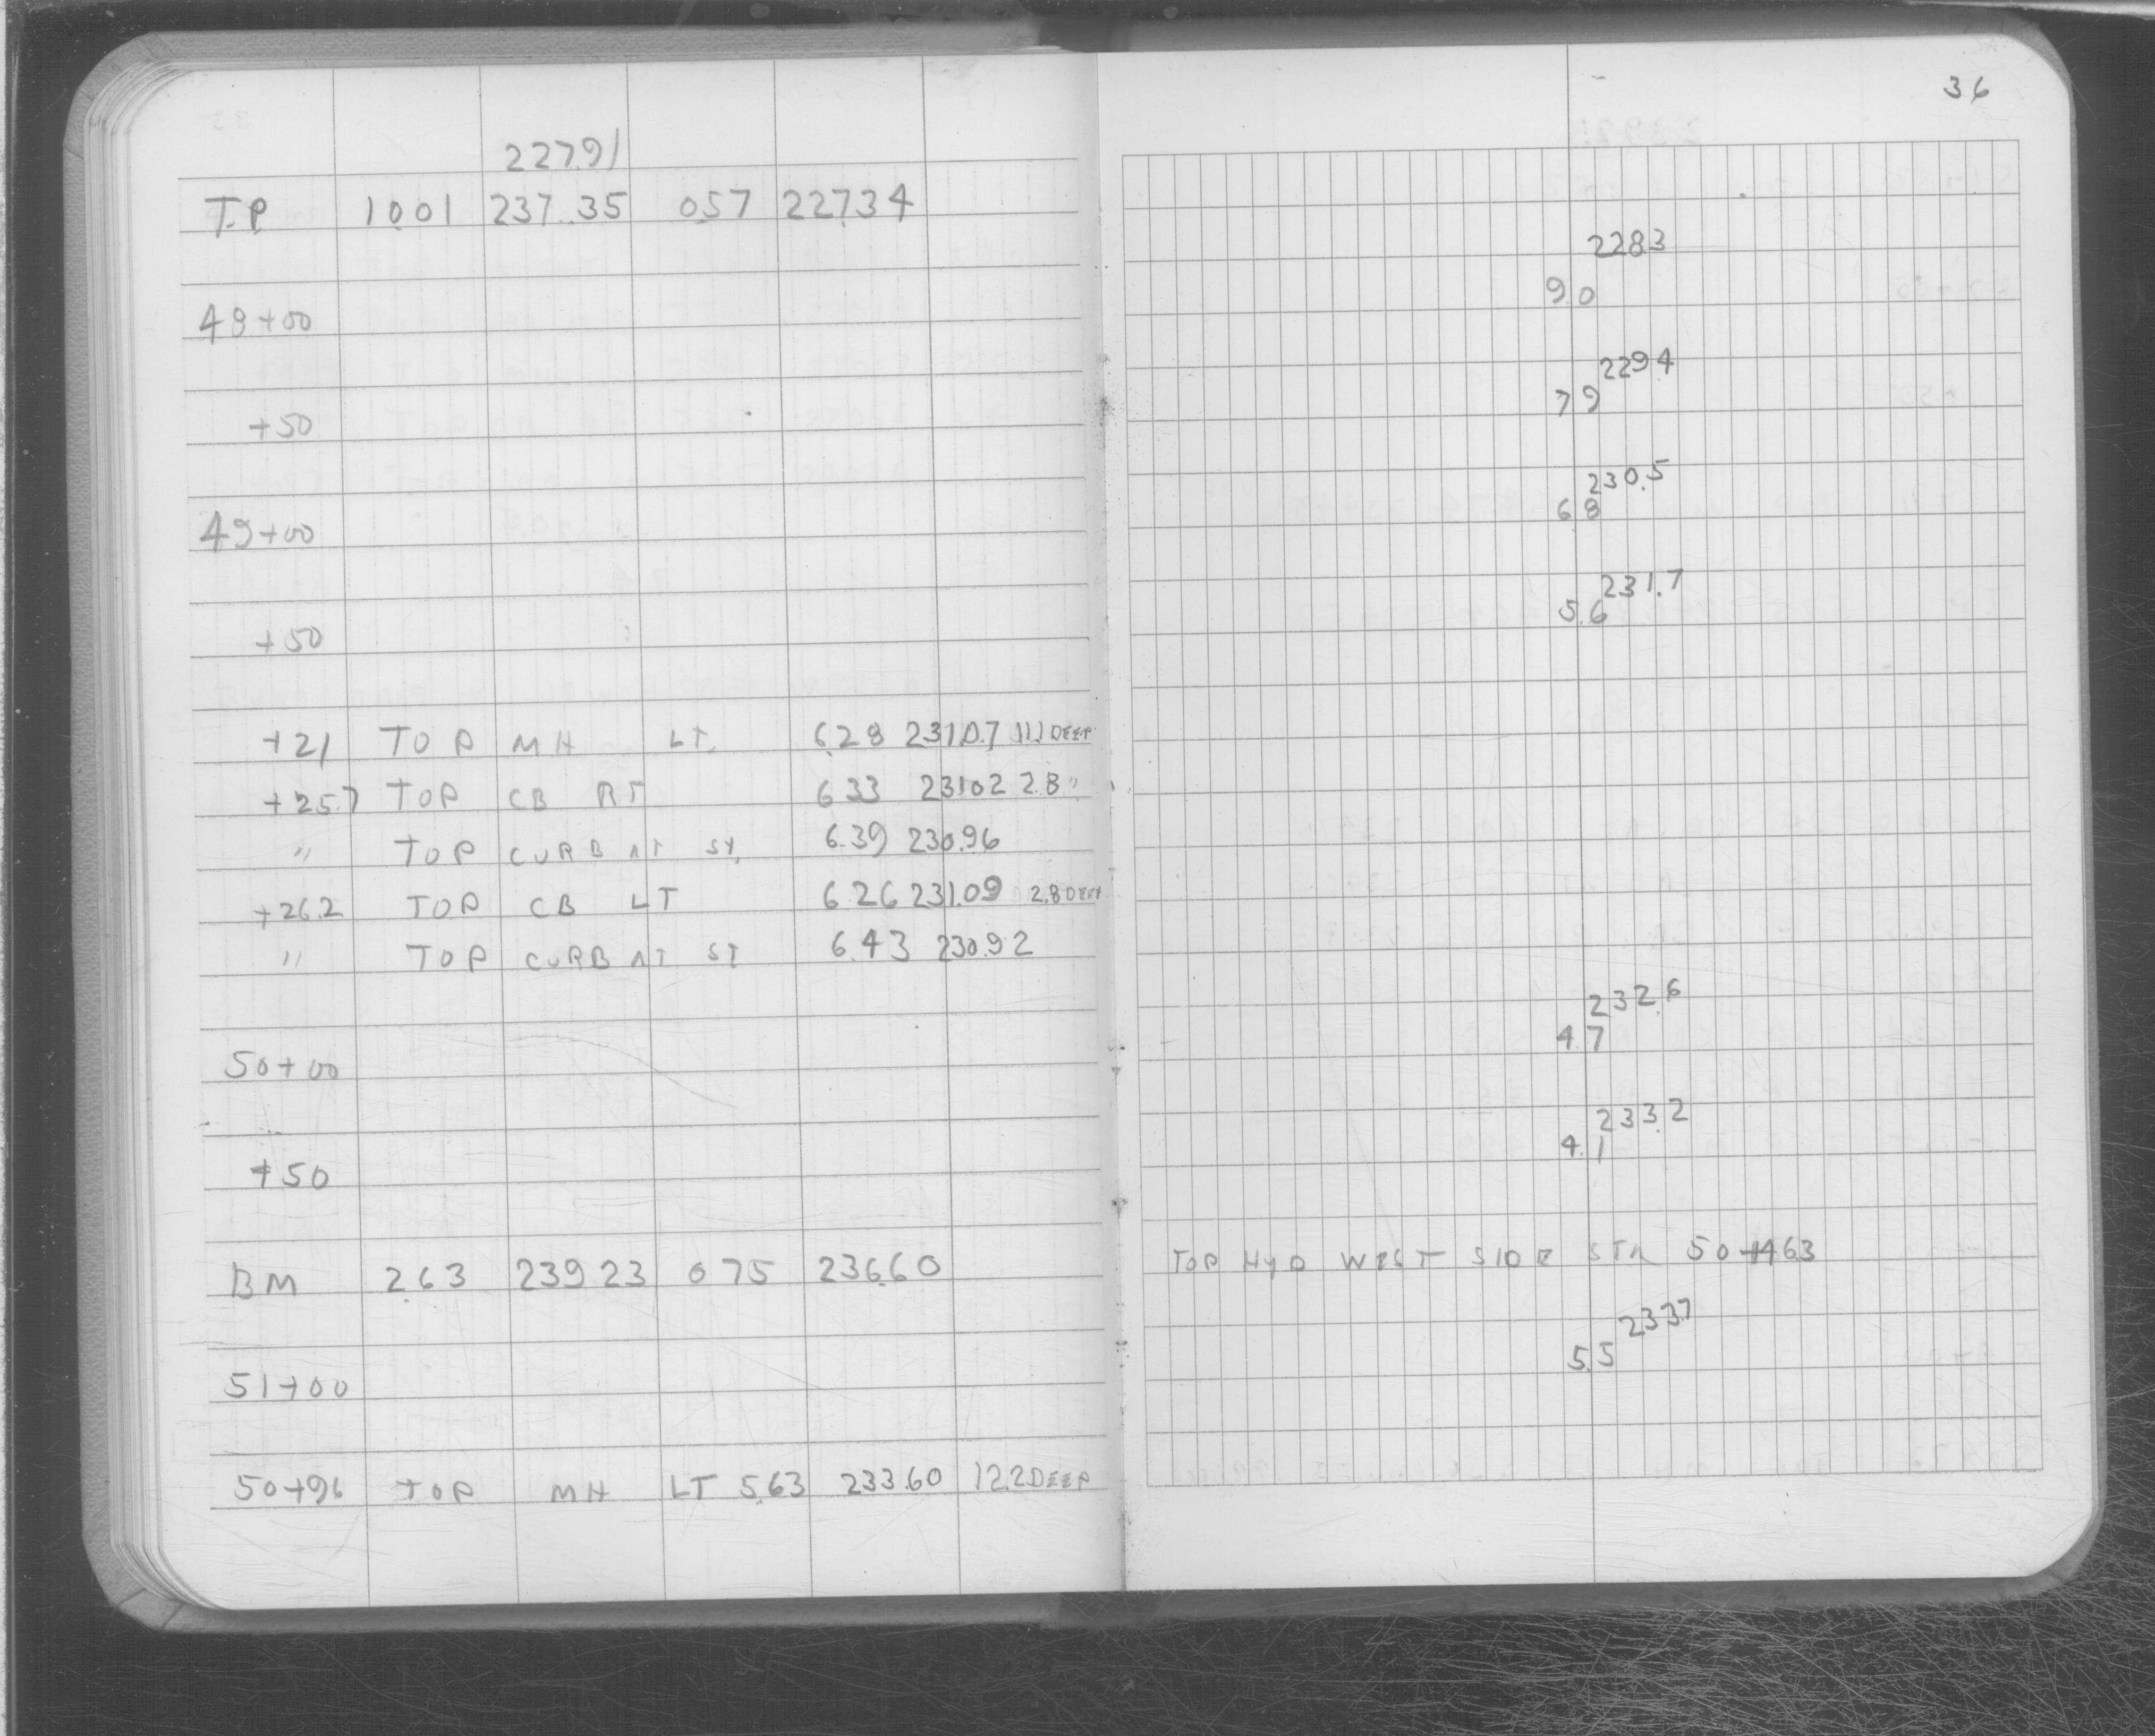 36
227.91
T.P. 10.01 237.35 0.57 227.34
228.3
9.0
48+00
229.4
+50 7.9
230.5
49+00 6.8
231.7
+50 5.6
+21 TOP MH LT. 6.28 231.07 11.1 DEEP
+25.7 TOP CB RT 6.33 231.02 2.8 "
" TOP CURB AT ST. 6.39 230.96
+26.2 TOP CB LT 6.26 231.09 2.8 DEEP
" TOP CURB AT ST 6.43 230.92
232.6
50+00 4.7
233.2
+50 4.1
BM 2.63 239.23 0.75 236.60 TOP HYD WEST SIDE STA 50+463
233.7
51+00 5.5
50+96 TOP MH LT 5.63 233.60 12.2 DEEP